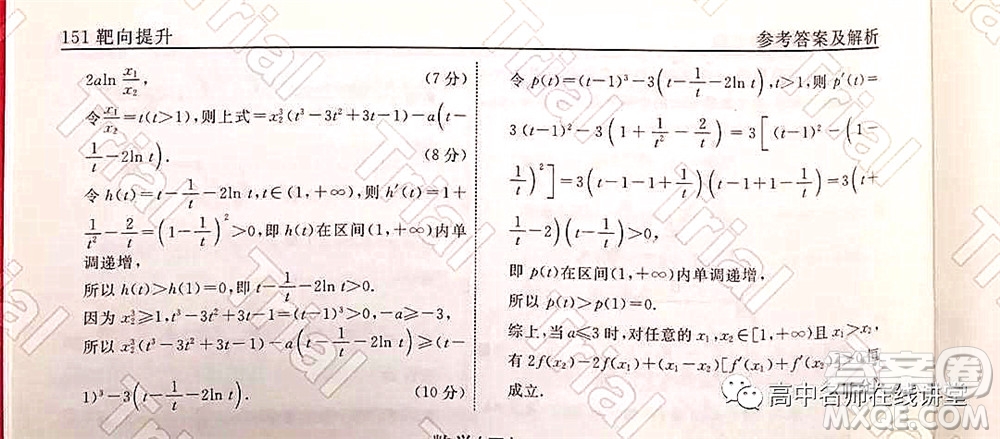 151 靶向提升
参考答案及解析
2aln x₁/x₂, (7 分)
令 x₁/x₂=t(t>1),则上式=x₂³(t³-3t²+3t-1)-a(t-
1/t-2ln t). (8 分)
令 h(t)=t-1/t-2ln t,t∈(1,+∞),则 h′(t)=1+
1/t²-2/t=(1-1/t)²>0,即 h(t)在区间(1,+∞)内单
调递增,
所以 h(t)>h(1)=0,即 t-1/t-2ln t>0.
因为 x₂³≥1,t³-3t²+3t-1=(t-1)³>0,-a≥-3,
所以 x₂³(t³-3t²+3t-1)-a(t-1/t-2ln t)≥(t-
1)³-3(t-1/t-2ln t). (10 分)
令 p(t)=(t-1)³-3(t-1/t-2ln t),t>1,则 p′(t)=
3(t-1)²-3(1+1/t²-2/t)=3[(t-1)²-(1-
1/t)²]=3(t-1-1+1/t)(t-1+1-1/t)=3(t+
1/t-2)(t-1/t)>0,
即 p(t)在区间(1,+∞)内单调递增.
所以 p(t)>p(1)=0.
综上,当 a≤3 时,对任意的 x₁,x₂∈[1,+∞)且 x₁>x₂,
有 2f(x₂)-2f(x₁)+(x₁-x₂)[f′(x₁)+f′(x₂
成立.
高中名师在线讲堂
答案圈
MXQE.COM
Trial
Trial
Trial
Trial
Trial